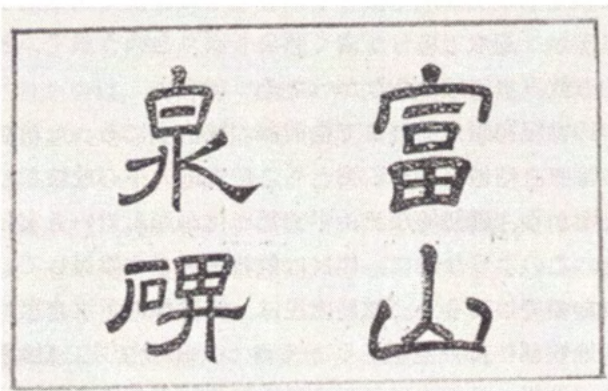 富山
泉碑